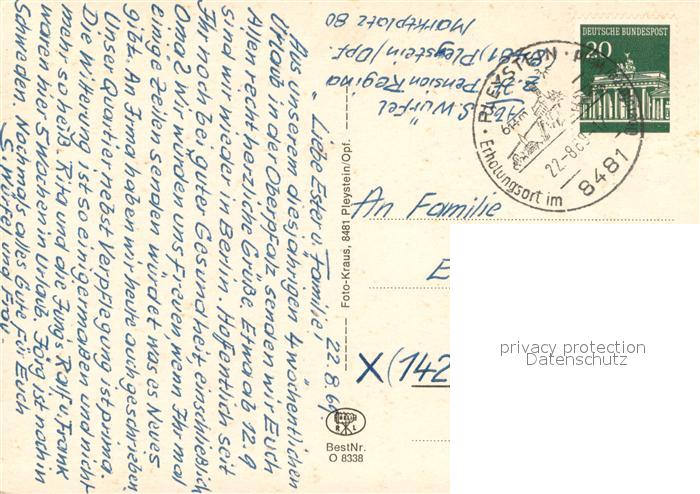 22.8.69
Liebe Ester u. Familie!
Aus unseren diesjährigen 4 wöchentlichen
Urlaub in der Oberpfalz senden wir Euch
Allen recht herzliche Grüße. Etwa ab 12.9
sind wir wieder in Berlin. Hoffentlich seit
Ihr noch bei guter Gesundheit, einschließlich
Oma? Wir würden uns freuen wenn Ihr mal
einige Zeilen senden würdet was es Neues
gibt. An Irma haben wir heute auch geschrieben.
Unser Quartier nebst Verpflegung ist prima.
Die Witterung ist so einigermaßen und nicht
mehr so heiß. Rita und die Jungs Ralf u. Frank
waren hier 3 Wochen in Urlaub. Jörg ist noch in
Schweden. Nochmals alles Gute für Euch
S. Würfel und Frau.
Abs. S. Würfel
z. Zt. Pension Regina
8481) Pleystein/Opf.
Marktplatz 80
Foto-Kraus, 8481 Pleystein/Opf.
DEUTSCHE BUNDESPOST
20
PLEYSTEIN
Erholungsort im
22-8.69
8481
An Familie
E
X (142
BestNr.
O 8338
privacy protection
Datenschutz